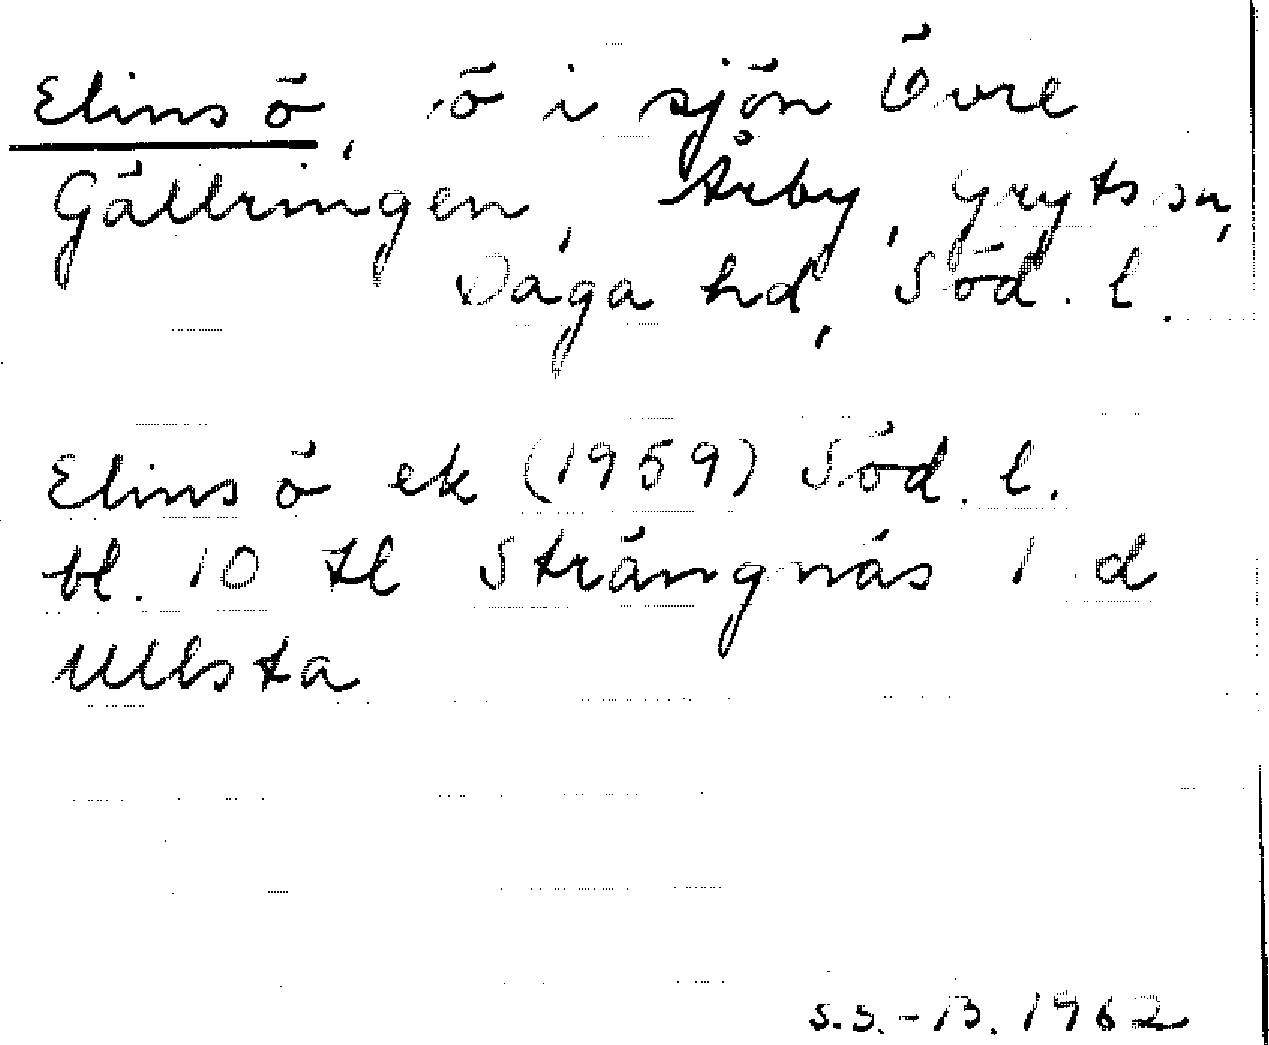 Elins ö, ö i sjön Övre
Gällringen, Årby, Gryts sn,
Daga hd, Söd. l.
Elins ö ek (1959) Söd. l.
bl. 10 tl Strängnäs 1 d
Ullsta
S.S.-B. 1962